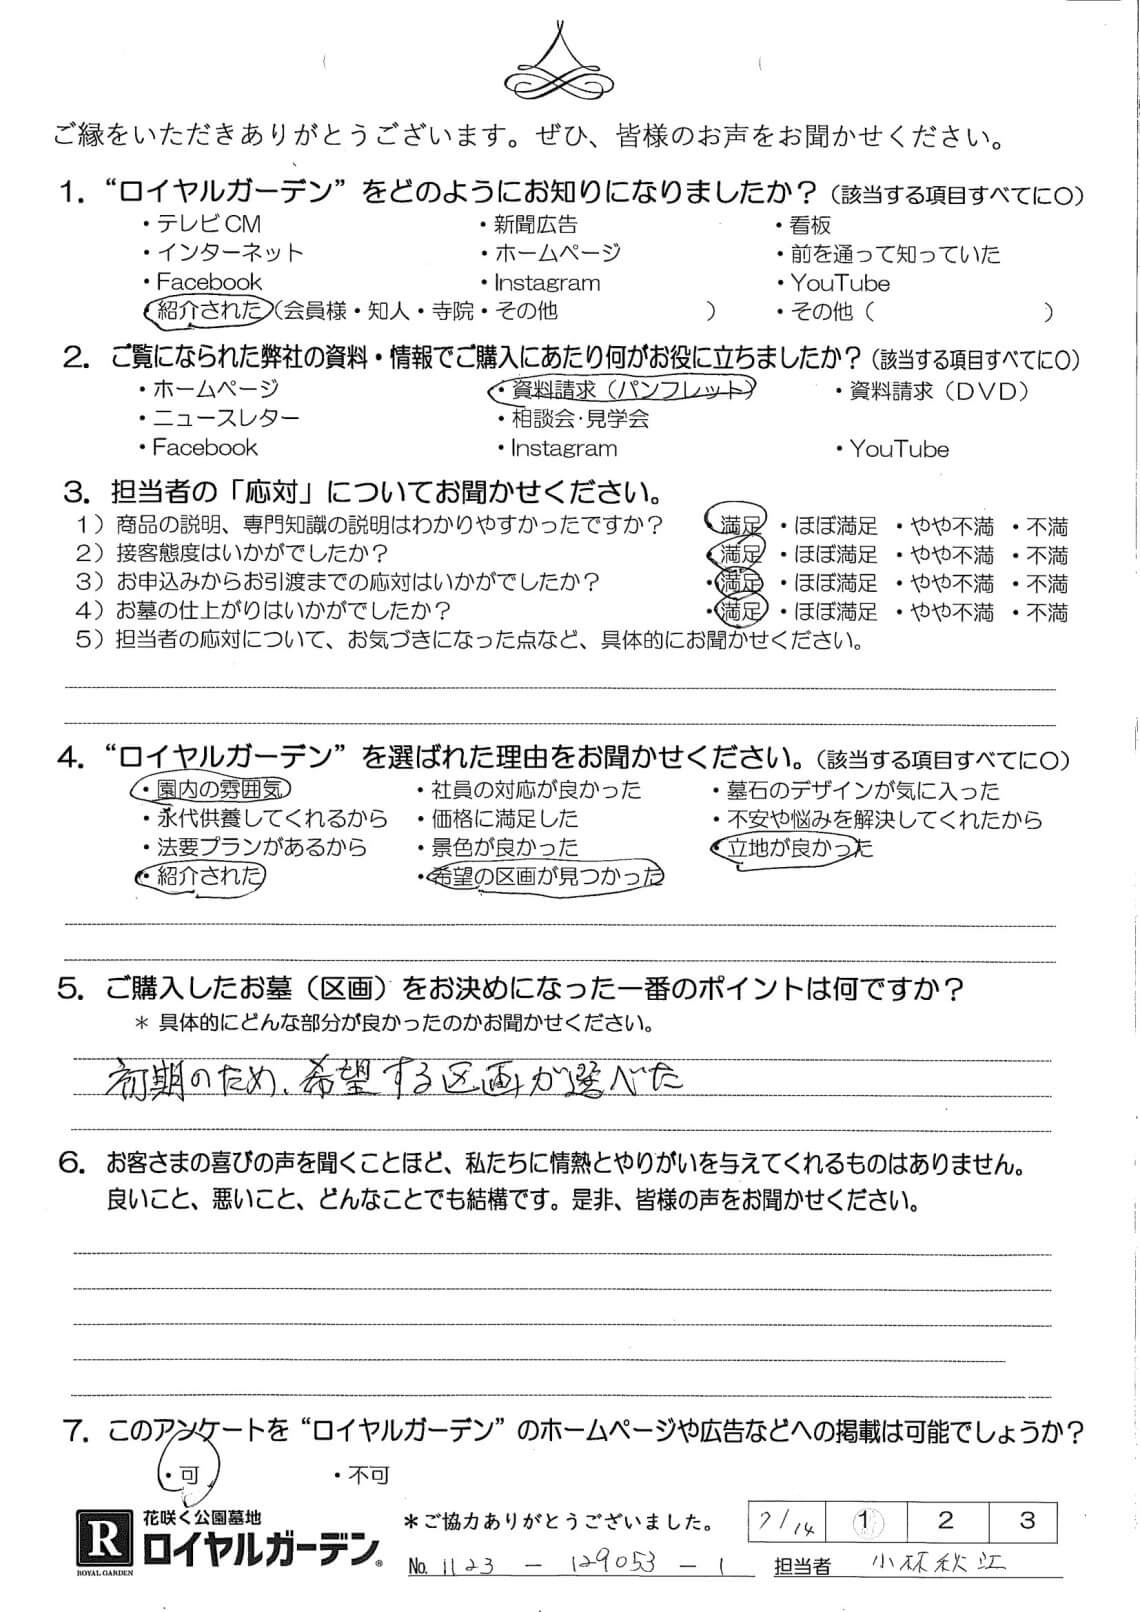 ご縁をいただきありがとうございます。ぜひ、皆様のお声をお聞かせください。
1. “ロイヤルガーデン” をどのようにお知りになりましたか？（該当する項目すべてに〇）
・テレビCM ・新聞広告 ・看板
・インターネット ・ホームページ ・前を通って知っていた
・Facebook ・Instagram ・YouTube
・紹介された（会員様・知人・寺院・その他 ） ・その他（ ）
2. ご覧になられた弊社の資料・情報でご購入にあたり何がお役に立ちましたか？（該当する項目すべてに〇）
・ホームページ ・資料請求（パンフレット） ・資料請求（DVD）
・ニュースレター ・相談会・見学会
・Facebook ・Instagram ・YouTube
3. 担当者の「応対」についてお聞かせください。
1）商品の説明、専門知識の説明はわかりやすかったですか？ ・満足 ・ほぼ満足 ・やや不満 ・不満
2）接客態度はいかがでしたか？ ・満足 ・ほぼ満足 ・やや不満 ・不満
3）お申込みからお引渡までの応対はいかがでしたか？ ・満足 ・ほぼ満足 ・やや不満 ・不満
4）お墓の仕上がりはいかがでしたか？ ・満足 ・ほぼ満足 ・やや不満 ・不満
5）担当者の応対について、お気づきになった点など、具体的にお聞かせください。
4. “ロイヤルガーデン” を選ばれた理由をお聞かせください。（該当する項目すべてに〇）
・園内の雰囲気 ・社員の対応が良かった ・墓石のデザインが気に入った
・永代供養してくれるから ・価格に満足した ・不安や悩みを解決してくれたから
・法要プランがあるから ・景色が良かった ・立地が良かった
・紹介された ・希望の区画が見つかった
5. ご購入したお墓（区画）をお決めになった一番のポイントは何ですか？
＊ 具体的にどんな部分が良かったのかお聞かせください。
初期のため、希望する区画が選べた
6. お客さまの喜びの声を聞くことほど、私たちに情熱とやりがいを与えてくれるものはありません。
良いこと、悪いこと、どんなことでも結構です。是非、皆様の声をお聞かせください。
7. このアンケートを “ロイヤルガーデン” のホームページや広告などへの掲載は可能でしょうか？
・可 ・不可
R
ROYAL GARDEN
花咲く公園墓地
ロイヤルガーデン®
＊ご協力ありがとうございました。
7/14 1 2 3
No. 1123 - 129053 - 1 担当者 小林秋江